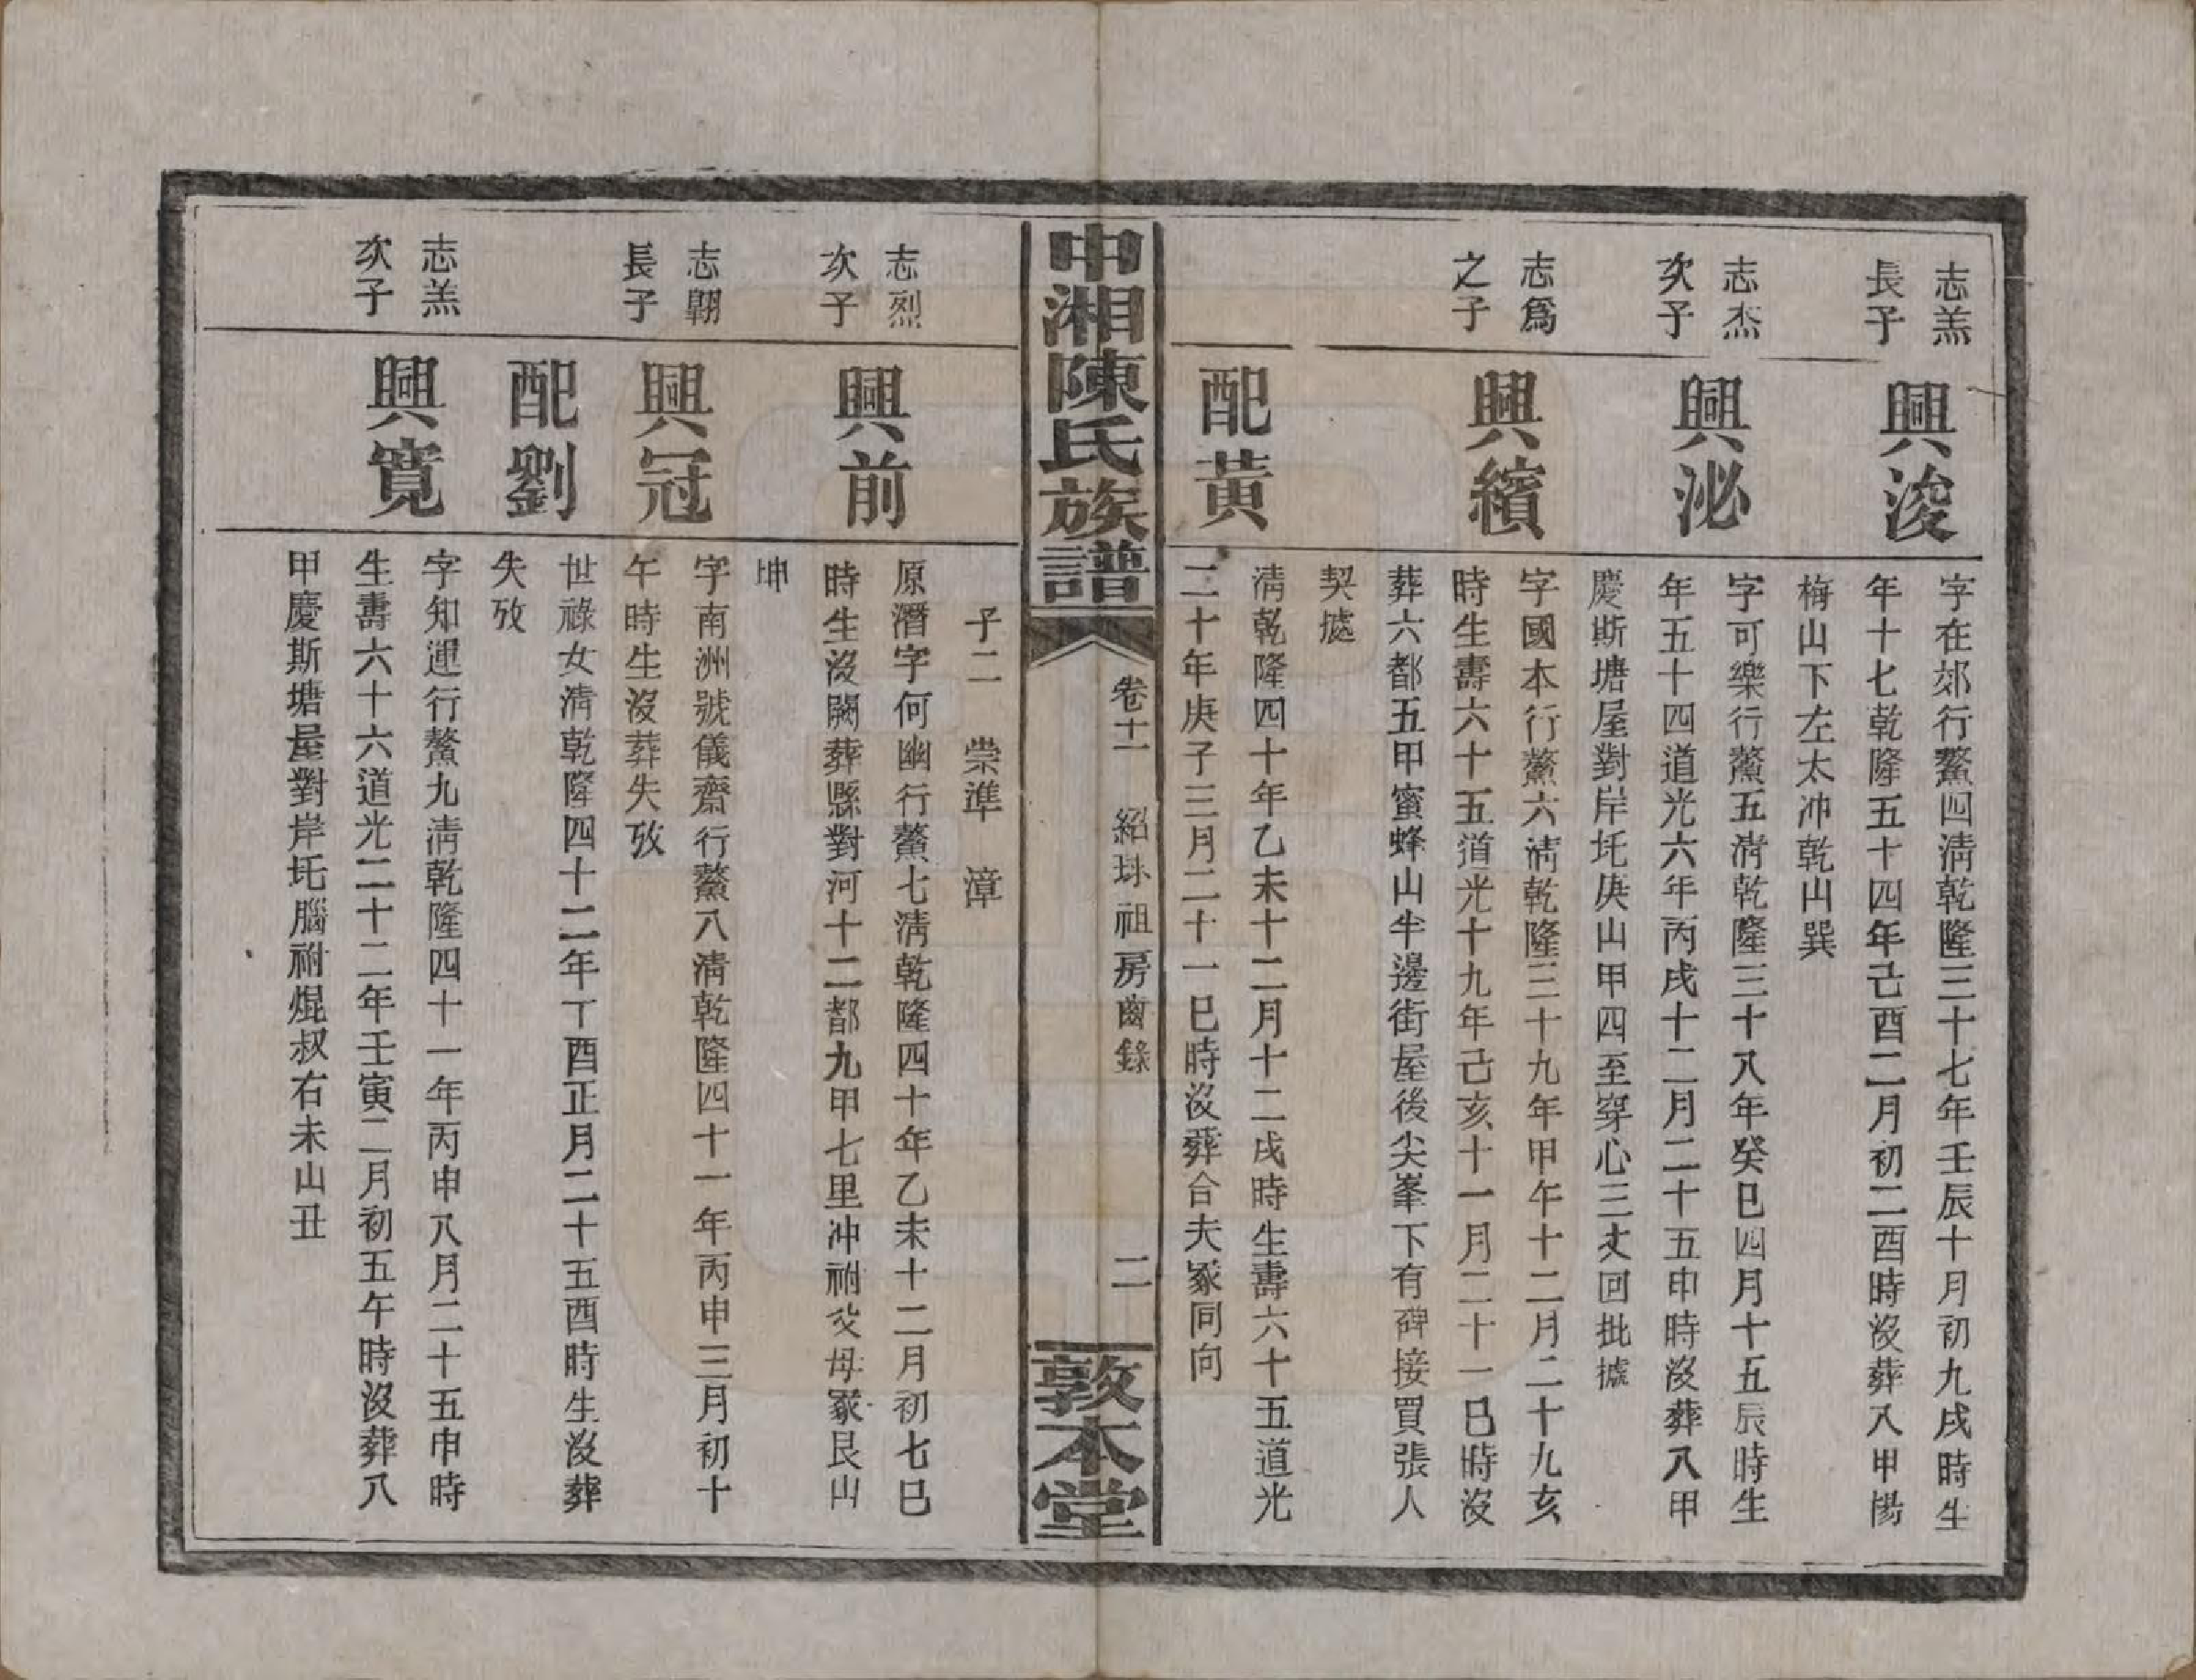 志羔
長子
興浚
字在郊行鰲四清乾隆三十七年壬辰十月初九戌時生
年十七乾隆五十四年己酉二月初二酉時沒葬八甲楊
梅山下左太冲乾山巽
志杰
次子
興泌
字可樂行鰲五清乾隆三十八年癸巳四月十五辰時生
年五十四道光六年丙戌十二月二十五申時沒葬八甲
慶斯塘屋對岸坉庚山甲四至穿心三丈回批據
志爲
之子
興繽
字國本行鰲六清乾隆三十九年甲午十二月二十九亥
時生壽六十五道光十九年己亥十一月二十一巳時沒
葬六都五甲蜜蜂山半邊街屋後尖峯下有碑接買張人
契據
配黃
清乾隆四十年乙未十二月十二戌時生壽六十五道光
二十年庚子三月二十一巳時沒葬合夫冢同向
中湘陳氏族譜
卷十一 紹球祖房齒錄
二
敦本堂
子二 崇準 漳
志烈
次子
興前
原潛字何幽行鰲七清乾隆四十年乙未十二月初七巳
時生沒闕葬縣對河十二都九甲七里冲祔父母冢艮山
坤
志翺
長子
興冠
字南洲號儀齋行鰲八清乾隆四十一年丙申三月初十
午時生沒葬失攷
配劉
世祿女清乾隆四十二年丁酉正月二十五酉時生沒葬
失攷
志羔
次子
興寬
字知運行鰲九清乾隆四十一年丙申八月二十五申時
生壽六十六道光二十二年壬寅二月初五午時沒葬八
甲慶斯塘屋對岸坉腦祔焜叔右未山丑